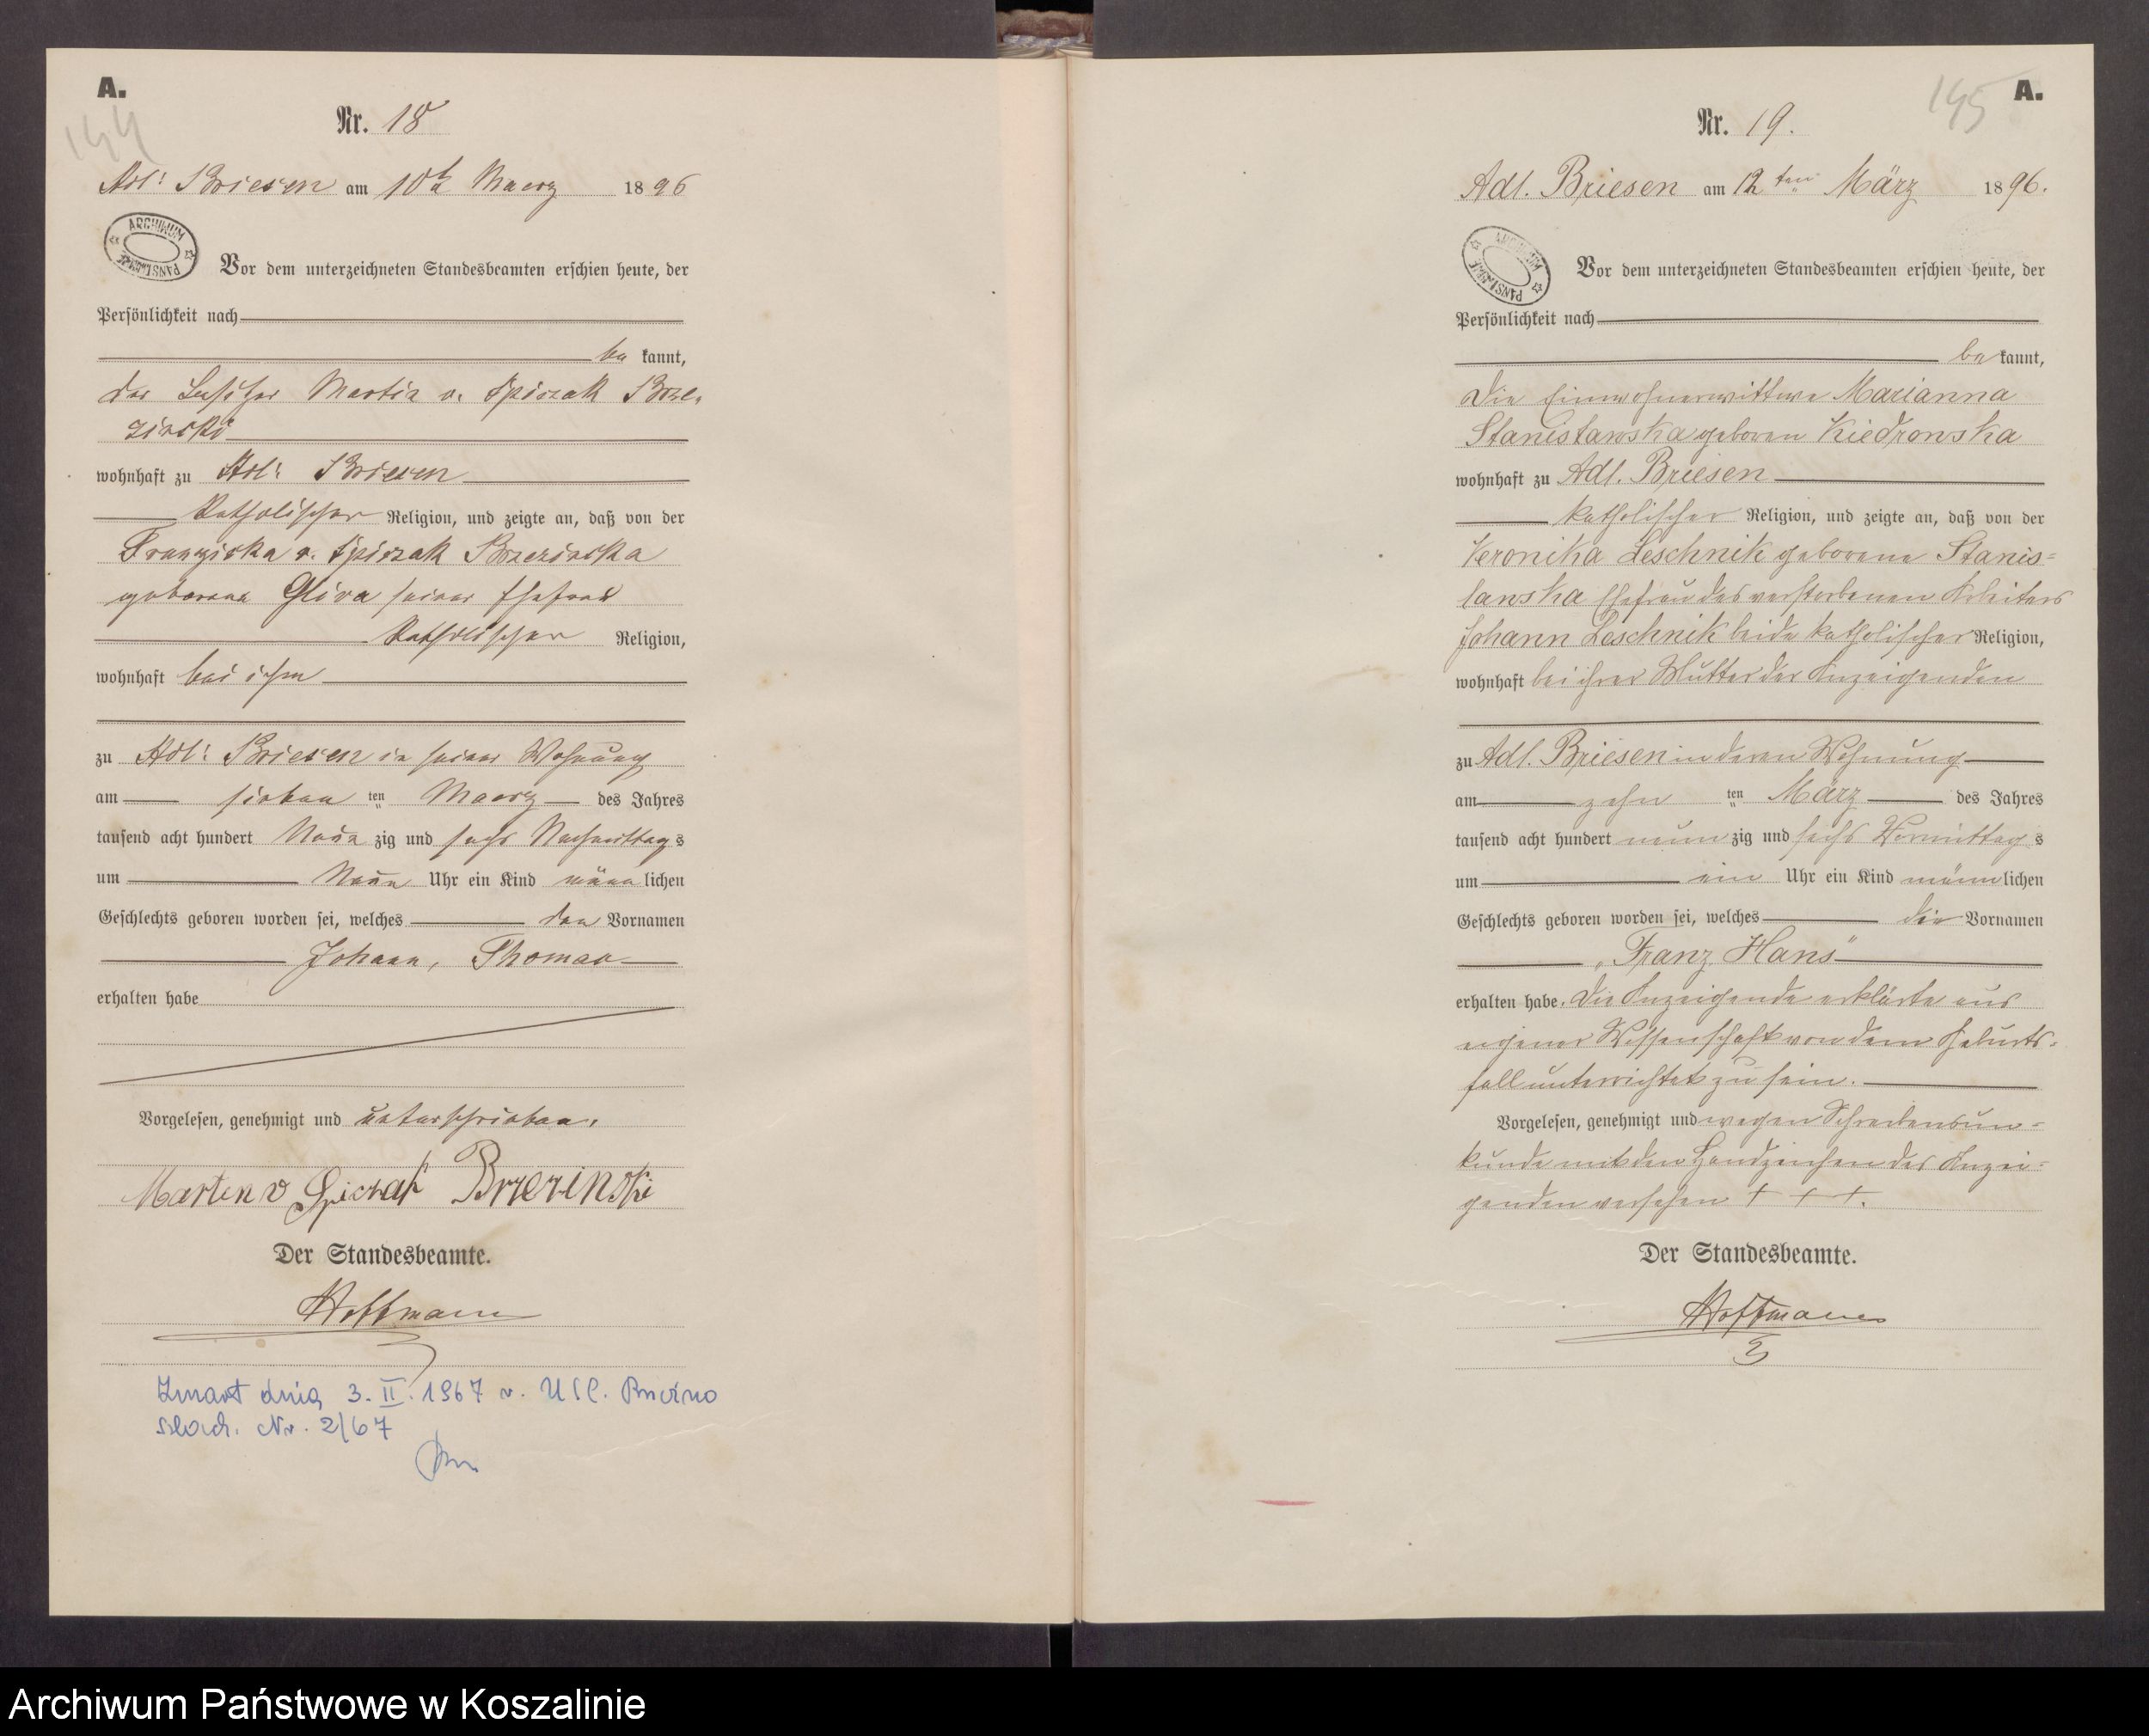 A.
144
Nr. 18
Adl: Briesen am 10t Maerz 1896
ARCHIWUM PAŃSTWOWE
Vor dem unterzeichneten Standesbeamten erschien heute, der
Persönlichkeit nach
be kannt,
der Besitzer Martin v. Spiczak Brze-
zinski
wohnhaft zu Adl: Briesen
katholischer Religion, und zeigte an, daß von der
Franziska v. Spiczak Brzezinska
geborene Gliva seiner Ehefrau
katholischer Religion,
wohnhaft bei ihm
zu Adl: Briesen in seiner Wohnung
am sieben ten Maerz des Jahres
tausend acht hundert Neun zig und sechs Nachmittags
um Neun Uhr ein Kind männ lichen
Geschlechts geboren worden sei, welches den Vornamen
Johann, Thomas
erhalten habe
Vorgelesen, genehmigt und unterschrieben.
Marten v Spiczak Brzezinski
Der Standesbeamte.
Hoffmann
Zmarł dnia 3. II. 1967 r. USC. Brzeźno
szlach. Nr. 2/67
A.
145
Nr. 19.
Adl. Briesen am 12ten März 1896.
ARCHIWUM PAŃSTWOWE
Vor dem unterzeichneten Standesbeamten erschien heute, der
Persönlichkeit nach
be kannt,
die Einwohnerwittwe Marianna
Stanisławska geboren Kiedrowska
wohnhaft zu Adl. Briesen
katholischer Religion, und zeigte an, daß von der
Veronika Leschnik geborene Stanis=
lawska Ehefrau des verstorbenen Arbeiters
Johann Leschnik beide katholischer Religion,
wohnhaft bei ihrer Mutter der Anzeigenden
zu Adl. Briesen in deren Wohnung
am zehn ten März des Jahres
tausend acht hundert neun zig und sechs Vormittags
um ein Uhr ein Kind männ lichen
Geschlechts geboren worden sei, welches die Vornamen
„Franz Hans"
erhalten habe. Die Anzeigende erklärte aus
eigener Wissenschaft von dem Geburts=
fall unterrichtet zu sein.
Vorgelesen, genehmigt und wegen Schreibensun=
kunde mit den Handzeichen der Anzei=
genden versehen + + +.
Der Standesbeamte.
Hoffmann
Archiwum Państwowe w Koszalinie